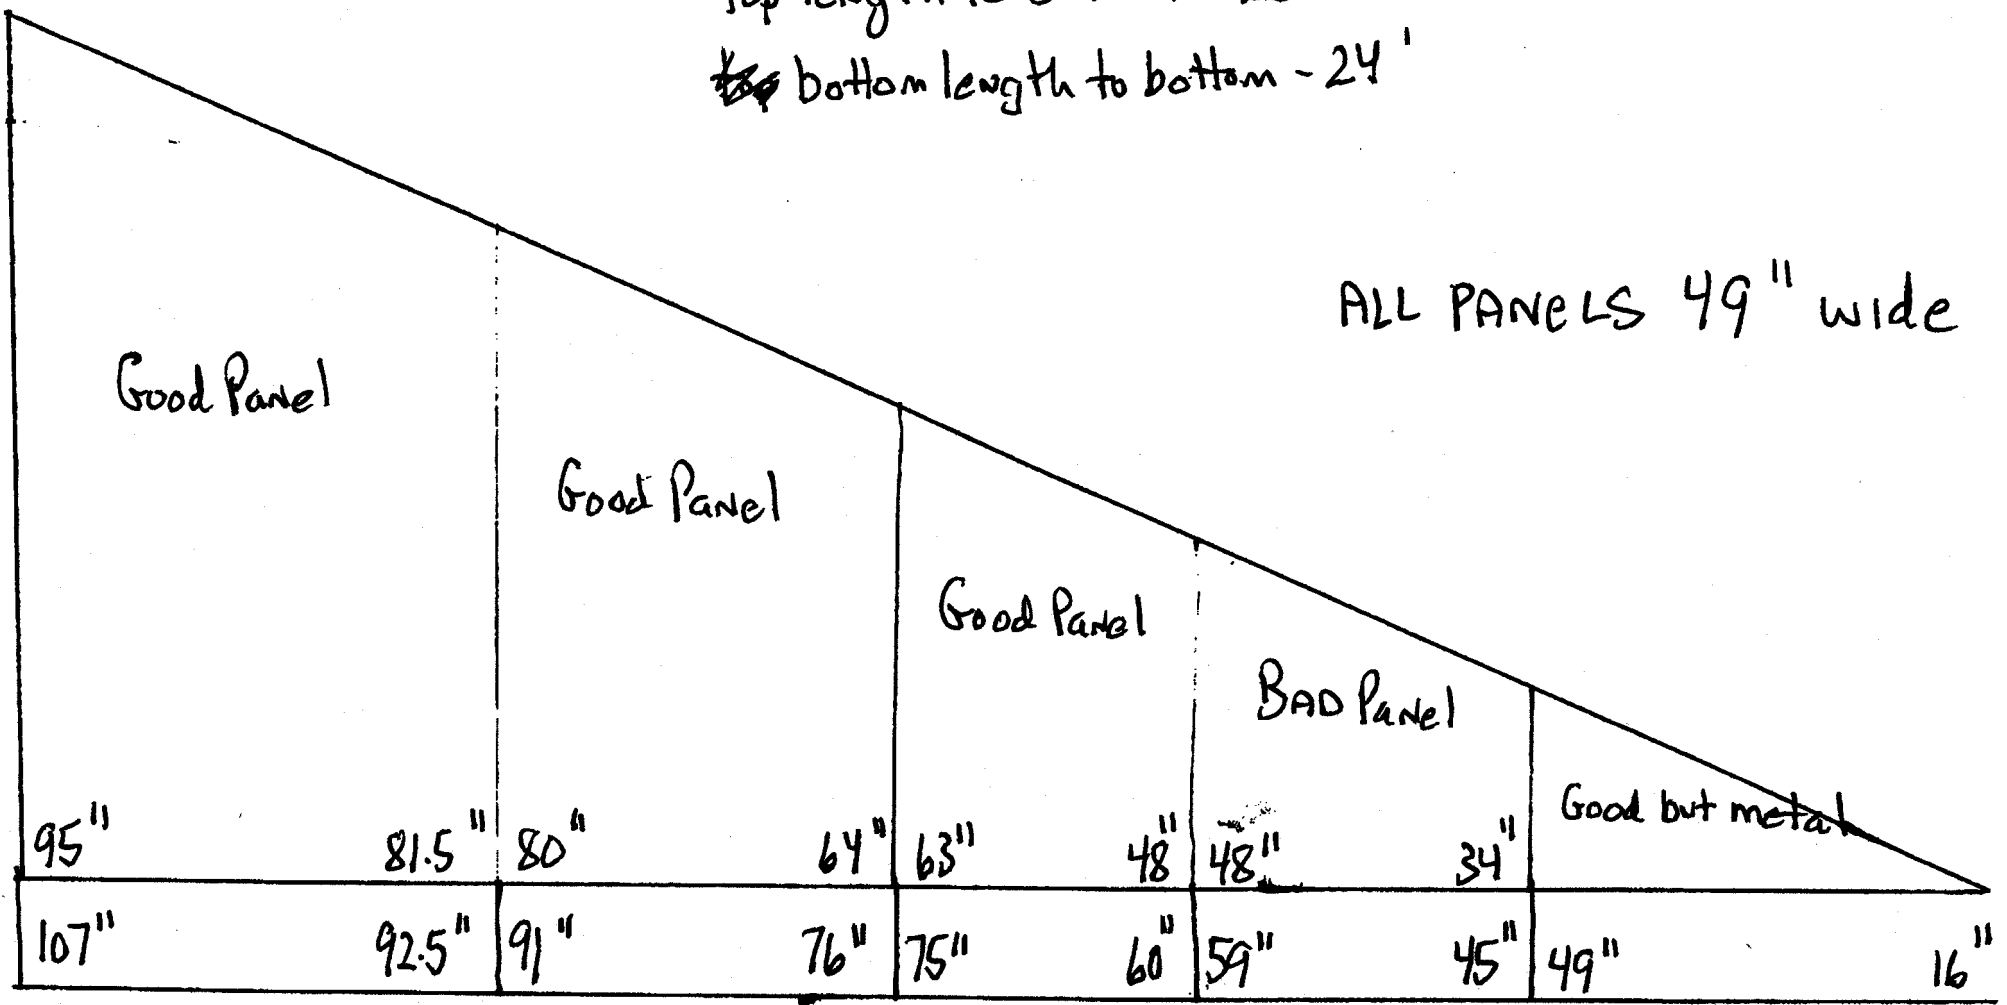 length
bottom length to bottom - 24'
ALL PANELS 49" wide
Good Panel
Good Panel
Good Panel
BAD Panel
Good but metal
95" 81.5" 80" 64" 63" 48" 48" 34"
107" 92.5" 91" 76" 75" 60" 59" 45" 49" 16"